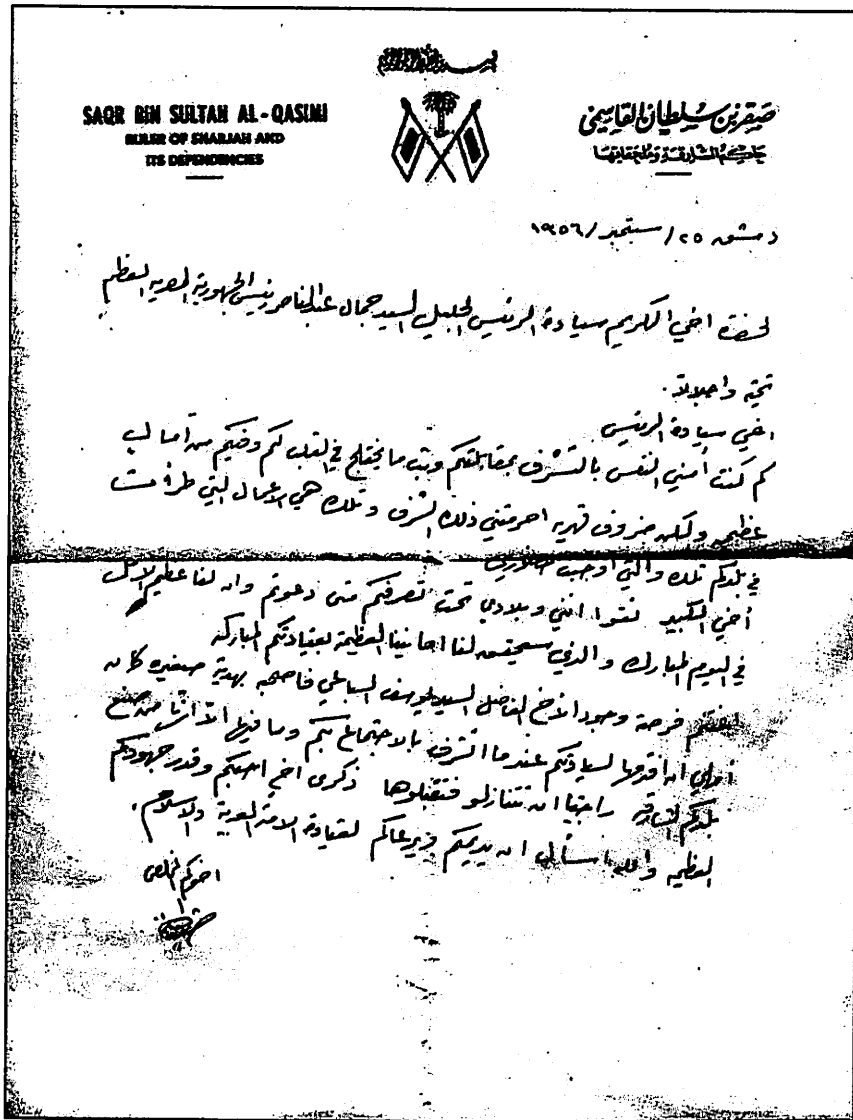 بسم الله الرحمن الرحيم
SAQR BIN SULTAN AL-QASIMI
RULER OF SHARJAH AND
ITS DEPENDENCIES
صقر بن سلطان القاسمي
حاكم الشارقة وملحقاتها
دمشق ٢٥/سبتمبر/١٩٥٦
لحضرة اخي الكريم سيادة الرئيس الجليل السيد جمال عبدالناصر رئيس الجمهورية المصرية المعظم
تحية واجلالا.
اخي سيادة الرئيس
كم كنت أمني النفس بالتشرف بمقابلتكم وبث ما يختلج في القلب لكم وفيكم من آمال
عظيمه ولكن ضروف قهريه احرمتني ذلك الشرف وتلك هي الاعمال التي طرأت
في بلدكم تلك والتي اوجبت
أخي الكبير ثقوا انني وبلادي تحت تصرفكم متى دعوتم وان لنا عظيم الامل
في اليوم المبارك والذي سيحقق لنا امانينا العظيمة بقيادتكم المباركه
اغتنم فرصة وجود الأخ الفاضل السيد يوسف السباعي فاصحبه بهدية صغيره كان
أملي ان اقدمها لسيادتكم عندما اتشرف بالاجتماع بكم وما فيها الا انها من صنع
بلدكم الشارقه راجيا ان تتنازلو فتقبلوها ذكرى اخ احبكم وقدر جهودكم
العظيمه والله اسأل ان يديمكم ويرعاكم لقيادة الامة العربية والاسلام.
اخوكم المخلص